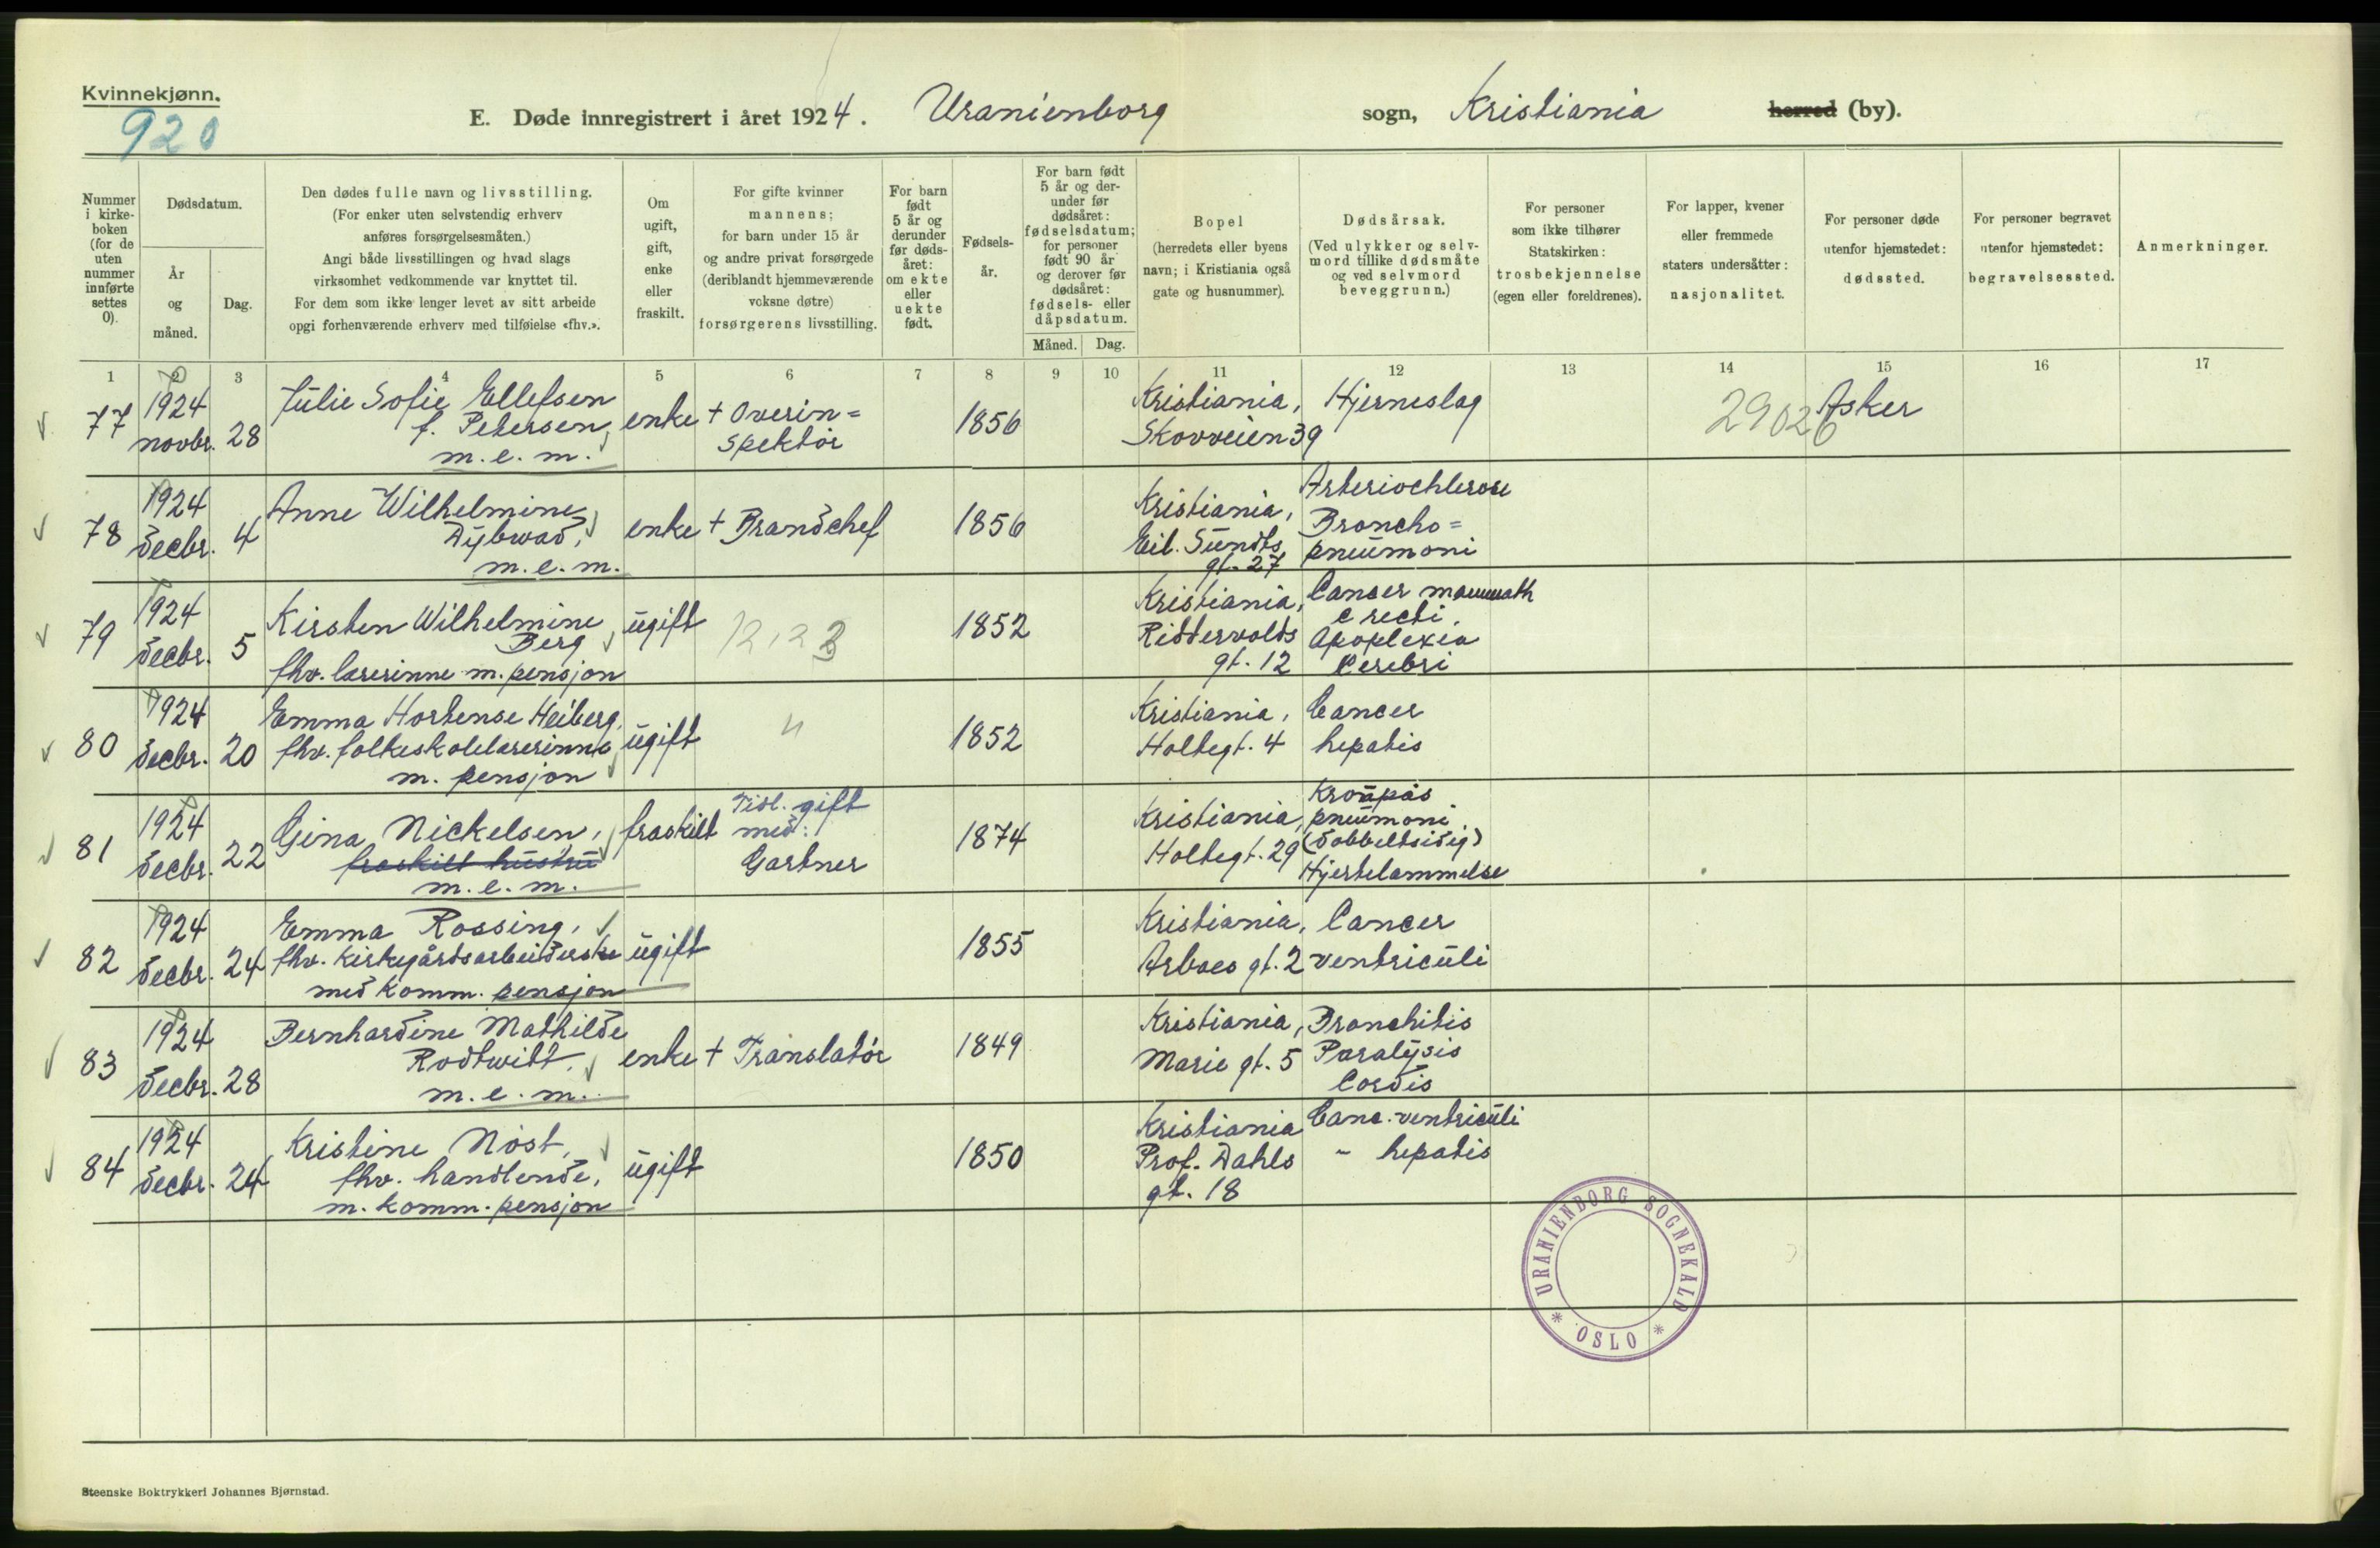 Kvinnekjønn.
920
E. Døde innregistrert i året 1924. Uranienborg sogn, Kristiania herred (by).
Nummer i kirke-boken (for de uten nummer innførte settes 0).
Dødsdatum.
År og måned.
Dag.
Den dødes fulle navn og livsstilling.
(For enker uten selvstendig erhverv
anføres forsørgelsesmåten.)
Angi både livsstillingen og hvad slags
virksomhet vedkommende var knyttet til.
For dem som ikke lenger levet av sitt arbeide
opgi forhenværende erhverv med tilføielse «fhv.».
Om ugift, gift, enke eller fraskilt.
For gifte kvinner
mannens;
for barn under 15 år
og andre privat forsørgede
(deriblandt hjemmeværende
voksne døtre)
forsørgerens livsstilling.
For barn født 5 år og derunder før døds-året: om ekte eller uekte født.
Fødsels-år.
For barn født 5 år og der-under før dødsåret: fødselsdatum; for personer født 90 år og derover før dødsåret: fødsels- eller dåpsdatum.
Måned.
Dag.
Bopel
(herredets eller byens
navn; i Kristiania også
gate og husnummer).
Dødsårsak.
(Ved ulykker og selv-
mord tillike dødsmåte
og ved selvmord
beveggrunn.)
For personer
som ikke tilhører
Statskirken:
trosbekjennelse
(egen eller foreldrenes).
For lapper, kvener
eller fremmede
staters undersåtter:
nasjonalitet.
For personer døde
utenfor hjemstedet:
dødssted.
For personer begravet
utenfor hjemstedet:
begravelsessted.
Anmerkninger.
1 2 3 4 5 6 7 8 9 10 11 12 13 14 15 16 17
77 1924 novbr. 28
Julie Sofie Ellefsen
f. Petersen,
m.e.m.
enke + Overin=
spektør
1856
Kristiania,
Skovveien 39
Hjerneslag
29026
Asker
78 1924 decbr. 4
Anne Wilhelmine
Dybwad,
m.e.m.
enke + Brandchef
1856
Kristiania,
Eil. Sundts
gt. 27
Arteriochlerose
Broncho=
pneumoni
79 1924 decbr. 5
Kirsten Wilhelmine
Berg
fhv. lærerinne m. pensjon
ugift
1852
Kristiania,
Riddervolds
gt. 12
Cancer
c recti.
Apoplexia
Cerebri
80 1924 decbr. 20
Emma Hortense Heiberg,
fhv. folkeskolelærerinne
m. pensjon
ugift
"
1852
Kristiania,
Holtegt. 4
Cancer
hepatis
81 1924 decbr. 22
Gina Nickelsen,
fraskilt hustru
m.e.m.
fraskilt
Tidl. gift
med:
Gartner
1874
Kristiania,
Holtegt. 29
Kroupøs
pneumoni.
(dobbeltsidig)
Hjertelammelse
82 1924 decbr. 24
Emma Rossing,
fhv. kirkegårdsarbeiderske
med komm. pensjon
ugift
1855
Kristiania,
Arboes gt. 2
Cancer
ventriculi
83 1924 decbr. 28
Bernhardine Mathilde
Rodtwitt.
m.e.m.
enke + Translatør
1849
Kristiania,
Marie gt. 5
Bronchitis
Paralysis
Cordis
84 1924 decbr. 24
Kristine Nøst,
fhv. handlende,
m. komm. pensjon
ugift
1850
Kristiania
Prof. Dahls
gt. 18
Canc. ventriculi
" hepatis
URANIENBORG SOGNEKALD * OSLO *
Steenske Boktrykkeri Johannes Bjørnstad.